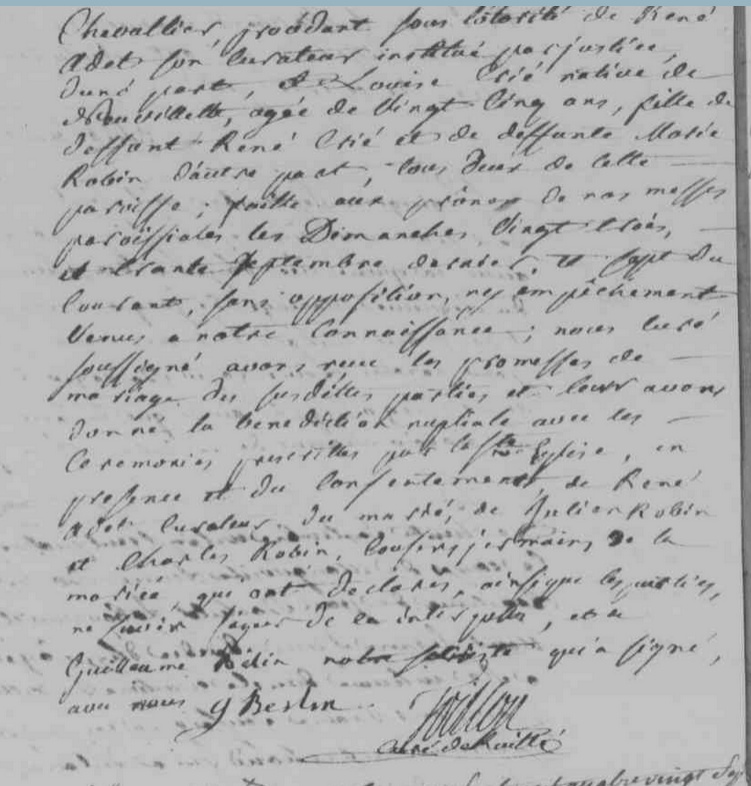 Chevallier, procédant sous l'otorité de René
Adet son curateur institué par justice,
d'une part, et Louise Crié native de
agée de vingt cinq ans, fille de
deffunt René Crié et de deffunte Marie
Robin d'autre part, tous deux de cette
paroisse ; faitte aux prônes de nos messes
paroissiales les Dimanches vingt trois,
et trente Septembre dernier, et sept du
courant, sans opposition, ny empêchement
venus a notre connoissance ; nous curé
soussigné avons reçu les promesses de
mariage des susdittes parties et leur avons
donné la benediction nuptiale avec les
Ceremonies prescrittes par la ste Eglise, en
presence et du consentement de René
Adet curateur du marié, de Julien Robin
et Charles Robin, cousins germains de la
mariée qui ont declarés, ainsi que les parties,
ne sçavoir signer de ce interpellés, et de
Guillaume notre qui a signé,
avec nous g Beslin
curé de Ruillé